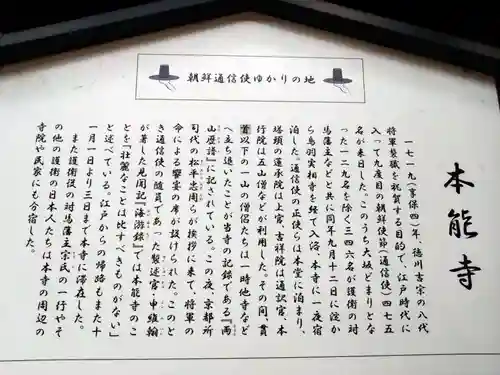 朝鮮通信使ゆかりの地
本能寺
一七一九(享保四)年、徳川吉宗の八代
将軍襲職を祝賀する目的で、江戸時代に
入って九度目の朝鮮使節(通信使)四七五
名が来日した。このうち大坂どまりとな
った一二九名を除く三四六名が護衛の対
馬藩主などと共に同年九月十二日に淀か
ら鳥羽実相寺を経て入洛、本寺に一夜宿
泊した。通信使の正使らは本堂に泊まり、
塔頭の蓮承院は上官、吉祥院は通訳官、本
行院は五山僧などが利用した。その間、貫
首以下の一山の僧侶たちは一時他寺など
へ立ち退いたことが当寺の記録である『両
山歴譜』に記されている。この夜、京都所
司代の松平忠周らが挨拶に来て、将軍の
命による饗宴の席が設けられた。このと
き通信使の随員であった製述官・申維翰
が著した見聞記『海游録』では本能寺のこ
とを『壮麗なことは比すべきものがない』
と述べている。江戸からの帰路もまた十
一月一日より三日まで本寺に滞在した。
また護衛役の対馬藩主宗氏の一行やそ
の他の護衛の日本人たちは本寺の周辺の
寺院や民家にも分宿した。